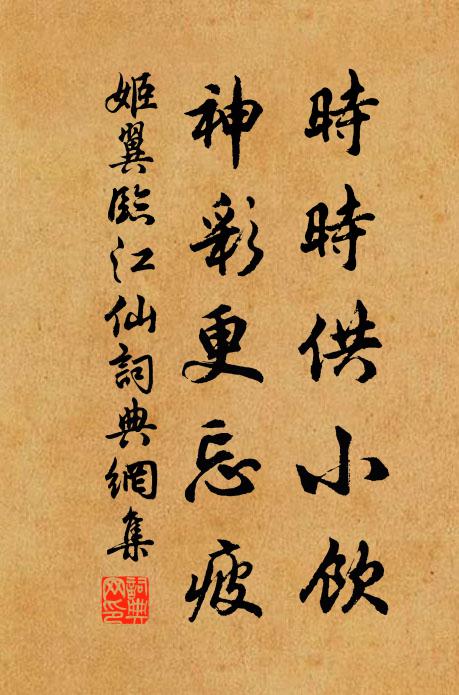 時時供小飲
神彩更忘疲
姬翼臨江仙詞典網集
詞典网印